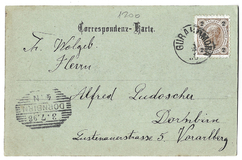 1900
Correspondenz-Karte.
Fr. Wolgeb.
Herrn
Alfred Ludescher
Dornbirn
Lustenauerstrasse 5 Vorarlberg
DORNBIRN